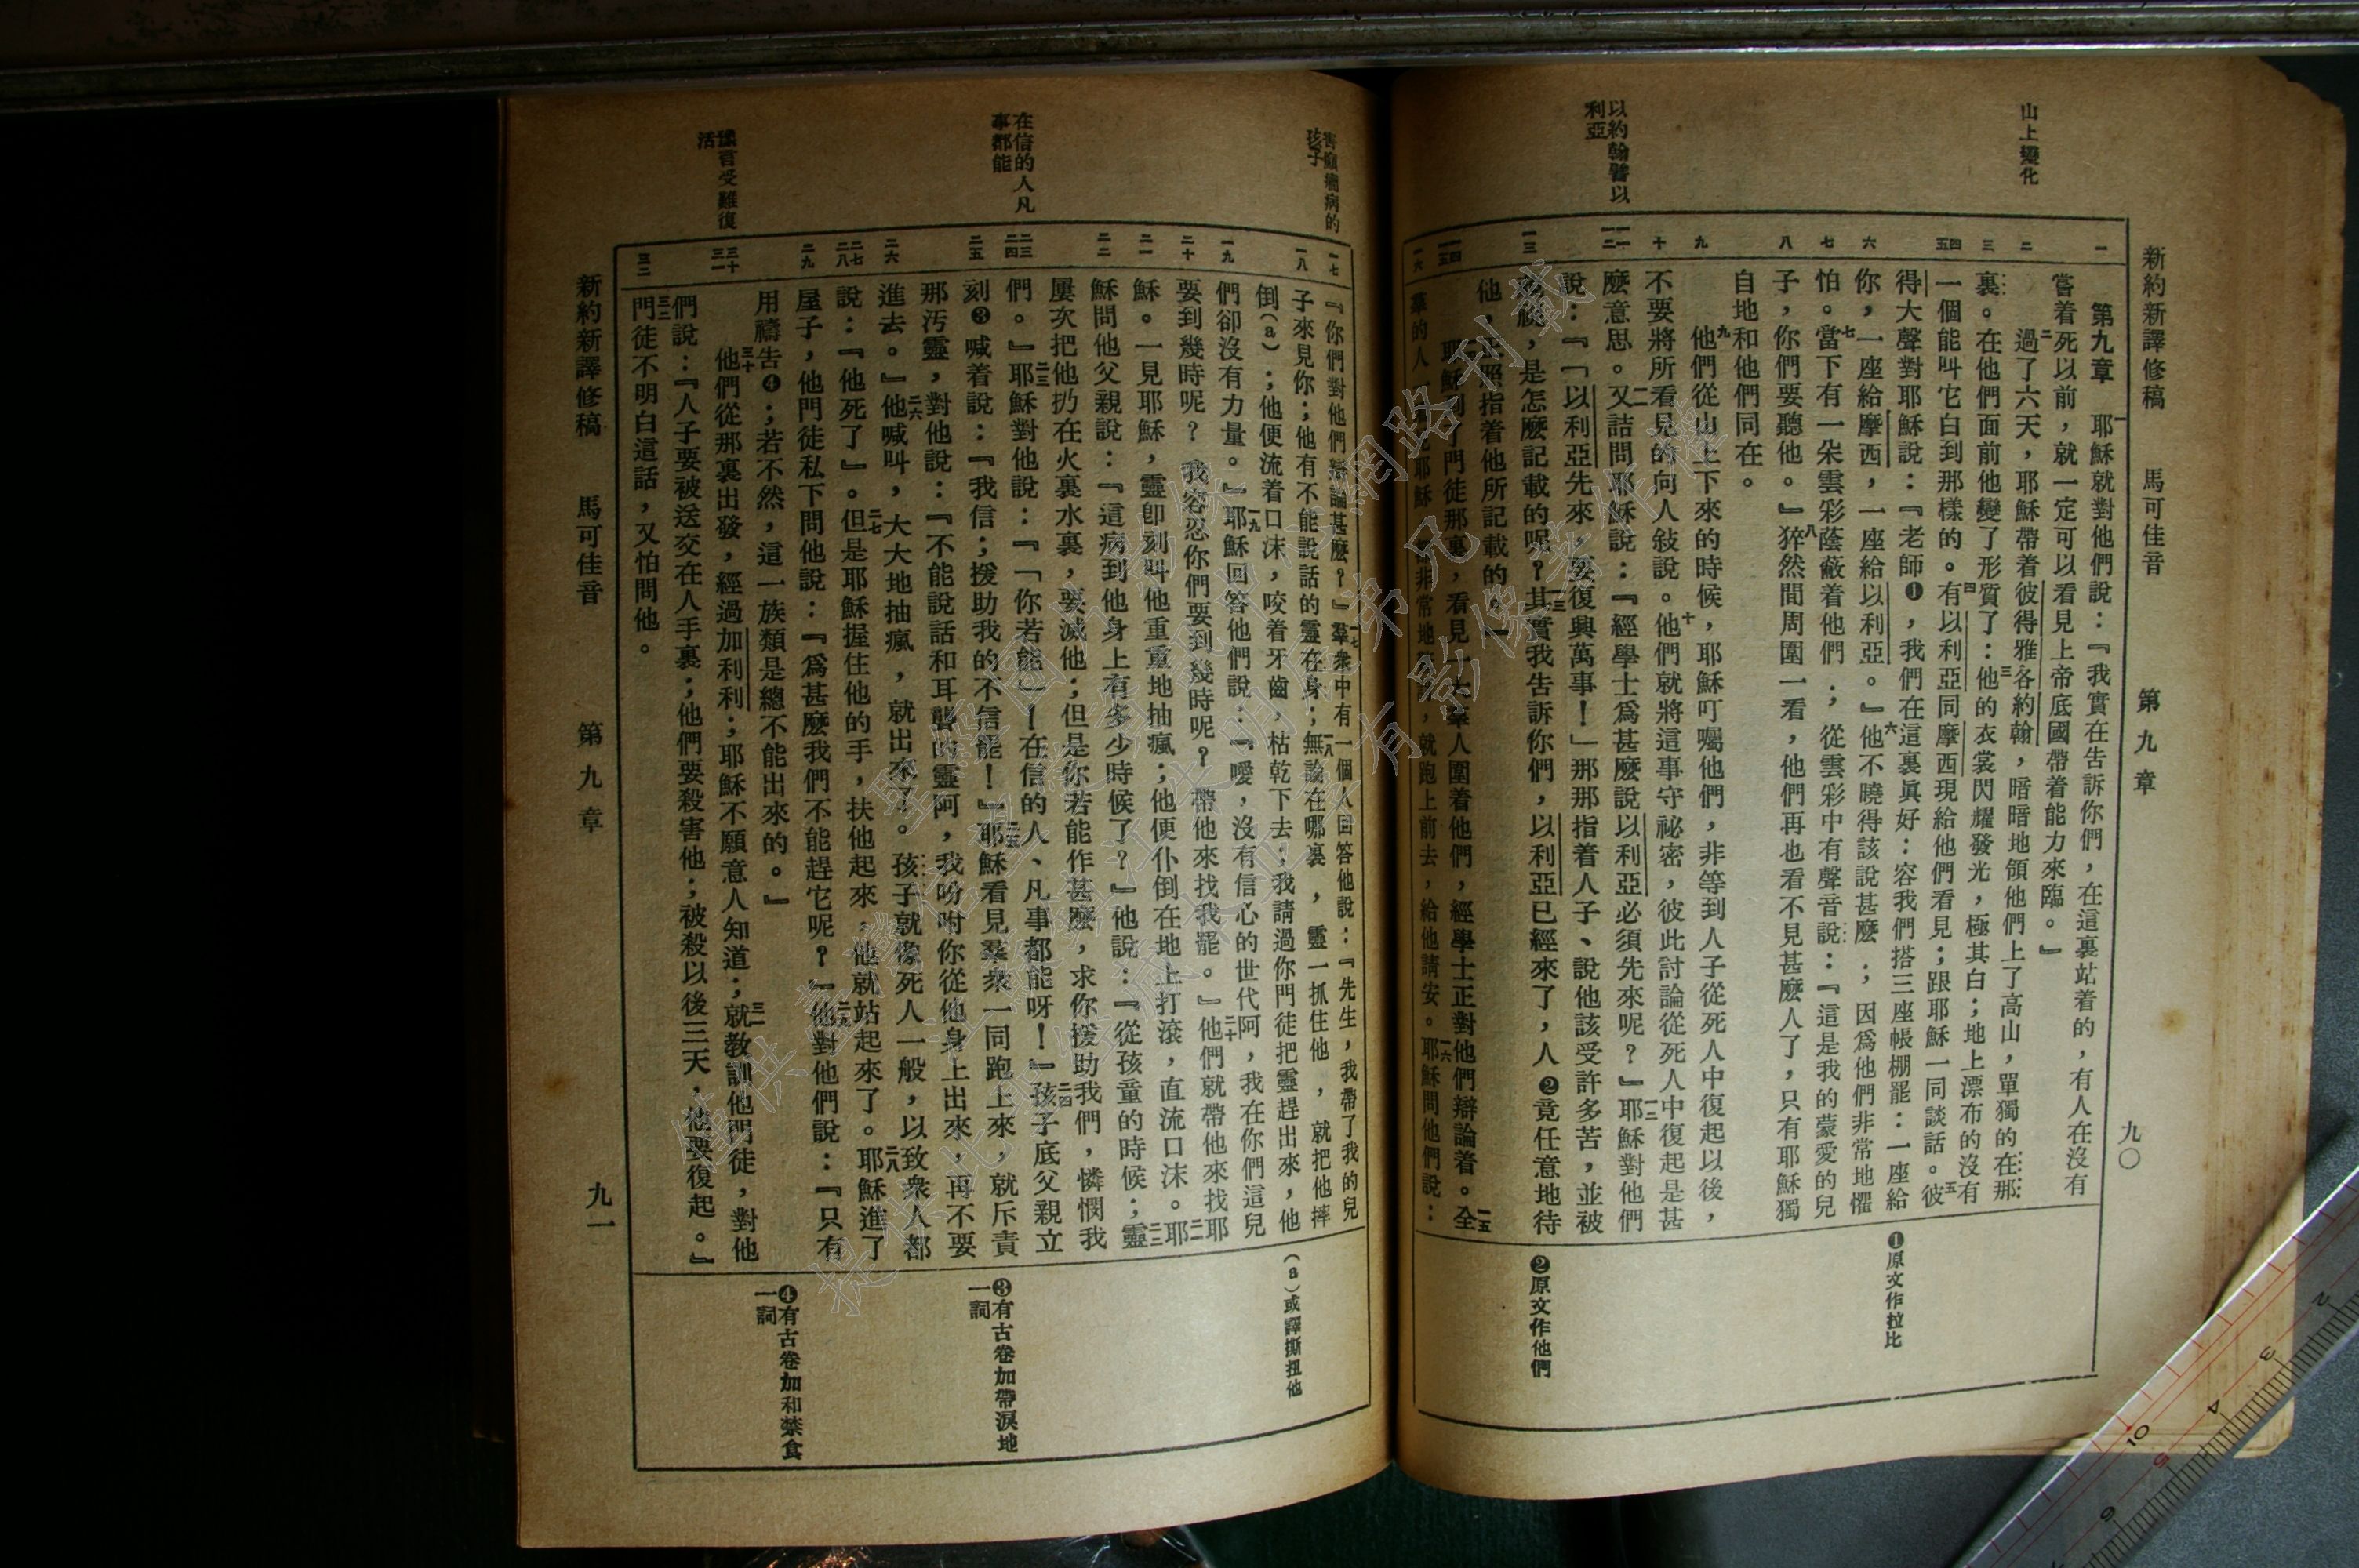 新約新譯修稿　馬可佳音　第九章　九〇
山上變化
以約翰譬以
利亞
一
二
三
四
五
六
七
八
九
十
一一
一二
一三
一四
一五
一六
第九章　一耶穌就對他們說：『我實在告訴你們，在這裏站着的，有人在沒有
嘗着死以前，就一定可以看見上帝底國帶着能力來臨。』
二過了六天，耶穌帶着彼得雅各約翰，暗暗地領他們上了高山，單獨的在那
裏。在他們面前他變了形質了：三他的衣裳閃耀發光，極其白；地上漂布的沒有
一個能叫它白到那樣的。四有以利亞同摩西現給他們看見；跟耶穌一同談話。五彼
得大聲對耶穌說：『老師❶，我們在這裏眞好：容我們搭三座帳棚罷：一座給
你，一座給摩西，一座給以利亞。』六他不曉得該說甚麼；因爲他們非常地懼
怕。七當下有一朵雲彩蔭蔽着他們；從雲彩中有聲音說：『這是我的蒙愛的兒
子，你們要聽他。』八猝然間周圍一看，他們再也看不見甚麼人了，只有耶穌獨
自地和他們同在。
九他們從山上下來的時候，耶穌叮囑他們，非等到人子從死人中復起以後，
不要將所看見的向人敍說。十他們就將這事守祕密，彼此討論從死人中復起是甚
麼意思。一一又詰問耶穌說：『經學士爲甚麼說以利亞必須先來呢？』一二耶穌對他們
說：『「以利亞先來，要復興萬事！」那那指着人子、說他該受許多苦，並被
，是怎麼記載的呢？一三其實我告訴你們，以利亞已經來了，人❷竟任意地待
他，正照指着他所記載的。』
一四耶穌到了門徒那裏，看見一大羣人圍着他們，經學士正對他們辯論着。一五全
羣的人一見耶穌，都非常地，就跑上前去，給他請安。一六耶穌問他們說：
❶原文作拉比
❷原文作他們
害癲癇病的
孩子
在信的人凡
事都能
豫言受難復
活
一七
一八
一九
二十
二一
二二
二三
二四
二五
二六
二七
二八
二九
三十
三一
三二
『你們對他們辯論甚麼？』一七羣衆中有一個人回答他說：『先生，我帶了我的兒
子來見你；他有不能說話的靈在身；一八無論在哪裏，靈一抓住他，就把他摔
倒（a）；他便流着口沫，咬着牙齒，枯乾下去；我請過你門徒把靈趕出來，他
們卻沒有力量。』一九耶穌回答他們說：『噯，沒有信心的世代阿，我在你們這兒
要到幾時呢？我容忍你們要到幾時呢？帶他來找我罷。』二十他們就帶他來找耶
穌。一見耶穌，靈卽刻叫他重重地抽瘋；他便仆倒在地上打滾，直流口沫。二一耶
穌問他父親說：『這病到他身上有多少時候了？』他說：『從孩童的時候；二二靈
屢次把他扔在火裏水裏，要滅他；但是你若能作甚麼，求你援助我們，憐憫我
們。』二三耶穌對他說：『「你若能」！在信的人、凡事都能呀！』二四孩子底父親立
刻❸喊着說：『我信；援助我的不信罷！』二五耶穌看見羣衆一同跑上來，就斥責
那汚靈，對他說：『不能說話和耳聾的靈阿，我吩咐你從他身上出來，再不要
進去。』二六他喊叫，大大地抽瘋，就出來了。孩子就像死人一般，以致衆人都
說：『他死了』。二七但是耶穌握住他的手，扶他起來，他就站起來了。二八耶穌進了
屋子，他門徒私下問他說：『爲甚麼我們不能趕它呢？』二九他對他們說：『只有
用禱告❹；若不然，這一族類是總不能出來的。』
三十他們從那裏出發，經過加利利；耶穌不願意人知道；三一就教訓他門徒，對他
們說：『人子要被送交在人手裏；他們要殺害他；被殺以後三天，他要復起。』
三二門徒不明白這話，又怕問他。
（a）或譯撕扭他
❸有古卷加帶淚地
一詞
❹有古卷加和禁食
一詞
新約新譯修稿　馬可佳音　第九章　九一